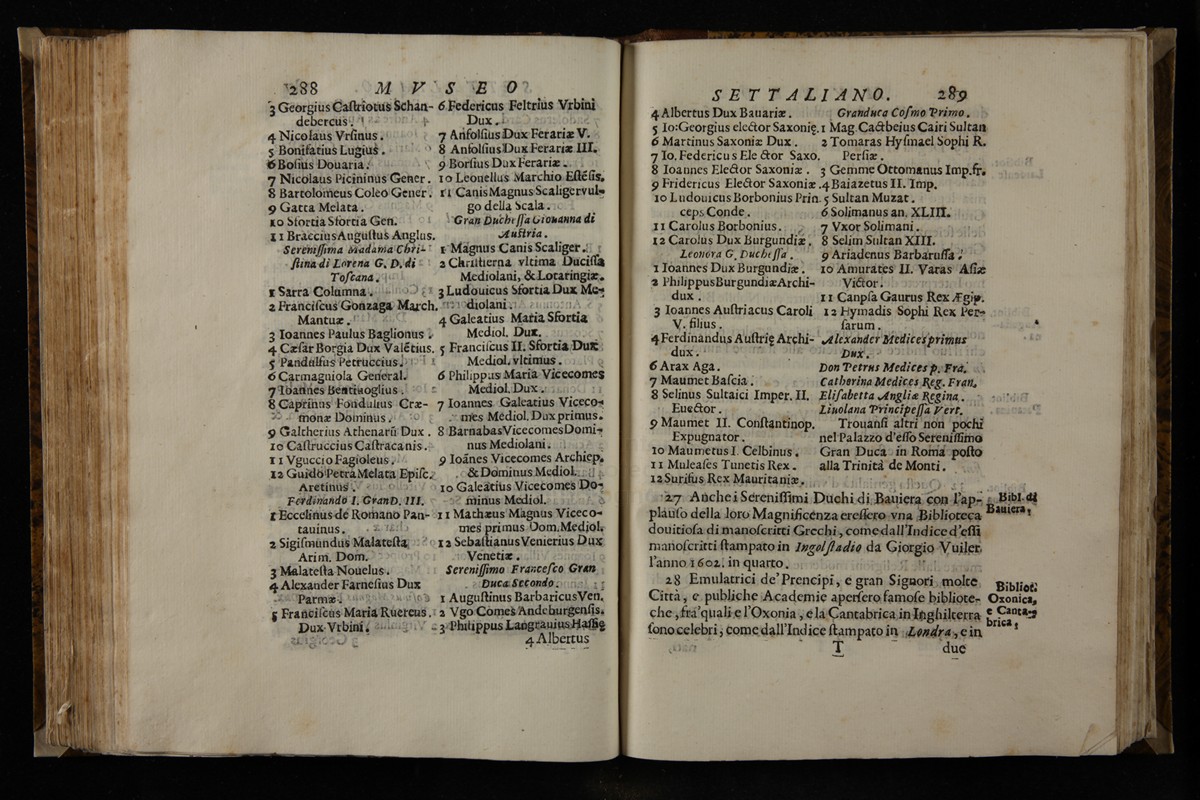 288 MVSEO
3 Georgius Caſtriotus Schan-
debercus.
4 Nicolaus Vrſinus.
5 Bonifatius Lugius.
6 Boſius Douaria.
7 Nicolaus Picininus Gener.
8 Bartolomeus Coleo Gener.
9 Gatta Melata.
10 Sfortia Sfortia Gen.
11 Braccius Auguſtus Anglus.
Sereniſſima Madama Chri-
ſtina di Lorena G. D. di
Toſcana.
1 Sarra Columna.
2 Franciſcus Gonzaga March.
Mantuæ.
3 Ioannes Paulus Baglionus.
4 Cæſar Borgia Dux Valẽtius.
5 Pandulfus Petruccius.
6 Carmagniola General.
7 Ioannes Bentiuoglius.
8 Caprinus Fondulius Cræ-
monæ Dominus.
9 Galtherius Athenarū Dux.
10 Caſtruccius Caſtracanis.
11 Vguccio Fagioleus.
12 Guido Petra Melata Epiſc.
Aretinus.
Ferdinando I. Gran D. III.
1 Eccelinus de Romano Pan-
tauinus.
2 Sigiſmundus Malateſta
Arim. Dom.
3 Malateſta Nouelus.
4 Alexander Farneſius Dux
Parmæ.
5 Franciſcus Maria Ruereus.
Dux Vrbini.
6 Federicus Feltrius Vrbini
Dux.
7 Anfolſius Dux Ferariæ V.
8 Anfolſius Dux Ferariæ III.
9 Borſius Dux Ferariæ.
10 Leonellus Marchio Eſtẽſis.
11 Canis Magnus Scaliger vul-
go della Scala.
Gran Ducheſſa Giouanna di
Auſtria.
1 Magnus Canis Scaliger.
2 Chriſtierna vltima Duciſſa
Mediolani, & Lotaringiæ.
3 Ludouicus Sfortia Dux Me-
diolani.
4 Galeatius Maria Sfortia
Mediol. Dux.
5 Franciſcus II. Sfortia Dux
Mediol. vltimus.
6 Philippus Maria Vicecomes
Mediol. Dux.
7 Ioannes Galeatius Viceco-
mes Mediol. Dux primus.
8 Barnabas Vicecomes Domi-
nus Mediolani.
9 Ioãnes Vicecomes Archiep.
& Dominus Mediol.
10 Galeatius Vicecomes Do-
minus Mediol.
11 Mathæus Magnus Viceco-
mes primus Dom. Mediol.
12 Sebaſtianus Venierius Dux
Venetiæ.
Sereniſſimo Franceſco Gran
Duca Secondo.
1 Auguſtinus Barbaricus Ven.
2 Vgo Comes Andeburgenſis.
3 Philippus Langrauius Haſſię
4 Albertus
SETTALIANO. 289
4 Albertus Dux Bauariæ.
5 Io: Georgius elector Saxonię.
6 Martinus Saxoniæ Dux.
7 Io. Federicus Elector Saxo.
8 Ioannes Elector Saxoniæ.
9 Fridericus Elector Saxoniæ.
10 Ludouicus Borbonius Prin.
ceps Conde.
11 Carolus Borbonius.
12 Carolus Dux Burgundiæ.
Leonora G. Ducheſſa.
1 Ioannes Dux Burgundiæ.
2 Philippus Burgundiæ Archi-
dux.
3 Ioannes Auſtriacus Caroli
V. filius.
4 Ferdinandus Auſtrię Archi-
dux.
6 Arax Aga.
7 Maumet Baſcia.
8 Selinus Sultaici Imper. II.
Euector.
9 Maumet II. Conſtantinop.
Expugnator.
10 Maumetus I. Celbinus.
11 Muleaſes Tunetis Rex.
12 Suriſus Rex Mauritaniæ.
Granduca Coſmo Primo.
1 Mag. Cactbeius Cairi Sultan
2 Tomaras Hyſmael Sophi R.
Perſiæ.
3 Gemme Ottomanus Imp. fr.
4 Baiazetus II. Imp.
5 Sultan Muzat.
6 Solimanus an. XLIII.
7 Vxor Solimani.
8 Selim Sultan XIII.
9 Ariadenus Barbaruſſa.
10 Amurates II. Varas Aſiæ
Victor.
11 Canpſa Gaurus Rex Ægip.
12 Hymadis Sophi Rex Per-
ſarum.
Alexander Medices primus
Dux.
Don Petrus Medices p. Fra.
Catherina Medices Reg. Fran.
Eliſabetta Angliæ Regina.
Liuolana Principeſſa Vert.
Trouanſi altri non pochi
nel Palazzo d'eſſo Sereniſſimo
Gran Duca in Roma poſto
alla Trinità de Monti.
27 Anche i Sereniſſimi Duchi di Bauiera con l'ap-
plauſo della loro Magnificenza ereſſero vna Biblioteca
douitioſa di manoſcritti Grechi, come dall'Indice d'eſſi
manoſcritti ſtampato in Ingolſtadio da Giorgio Vuiler
l'anno 1602. in quarto.
Bibl. di
Bauiera.
28 Emulatrici de' Prencipi, e gran Signori molte
Città, e publiche Academie aperſero famoſe bibliote-
che, frà quali e l'Oxonia, e la Cantabrica in Inghilterra
ſono celebri, come dall'Indice ſtampato in Londra, e in
Bibliot.
Oxonica,
e Canta-
brica.
T due